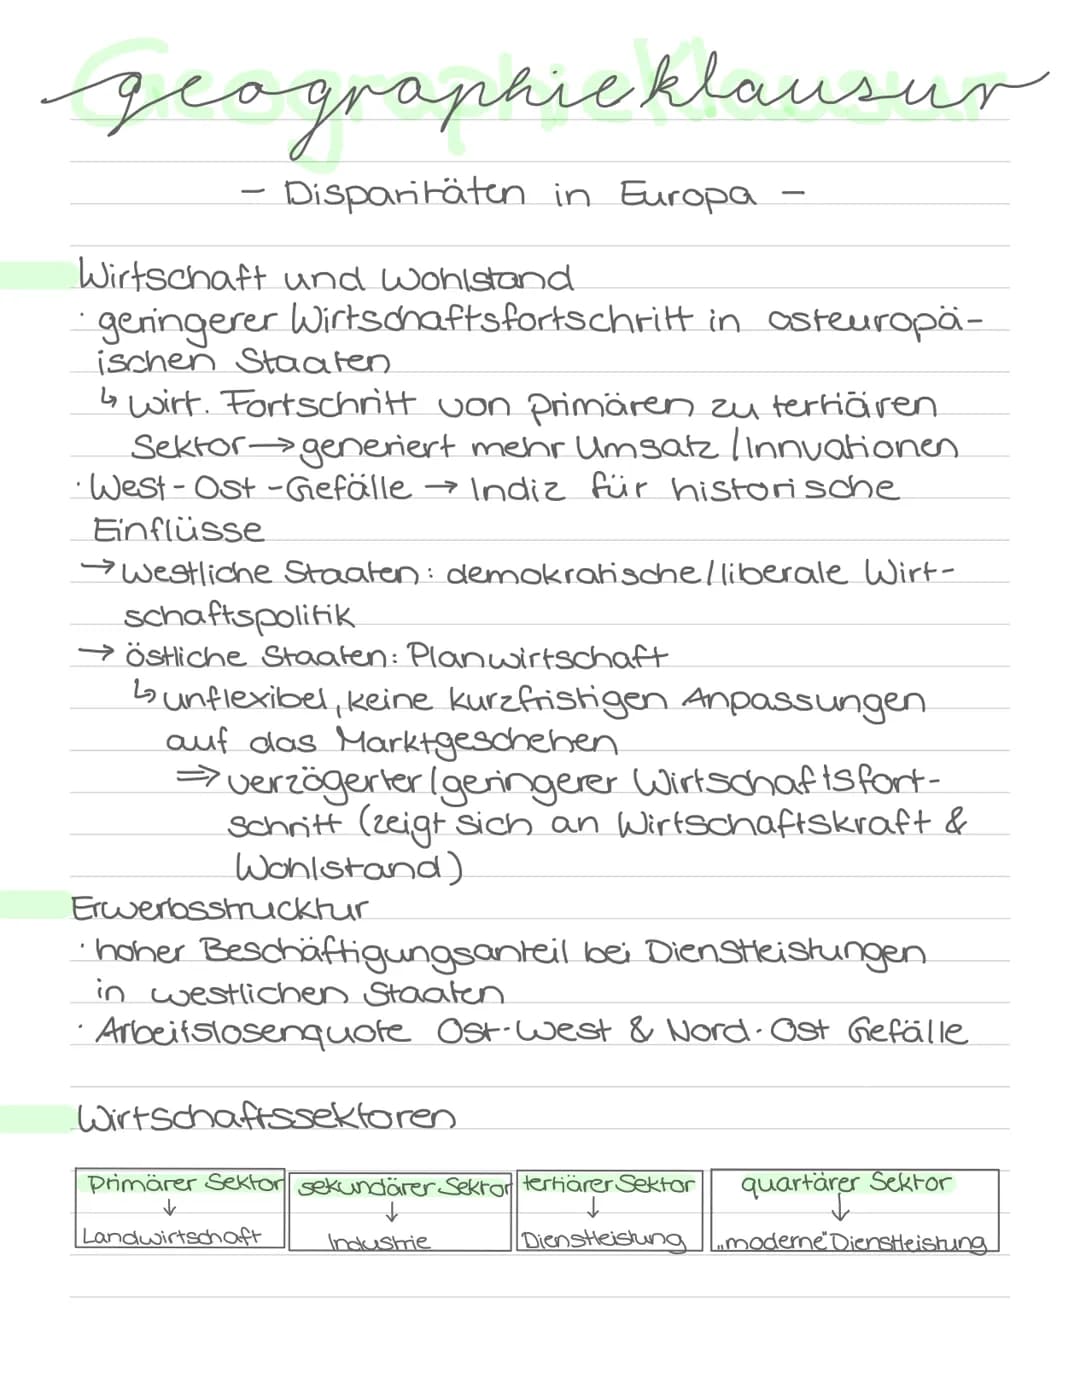 geographieklausur
- Disparitäten in Europa -
Wirtschaft und Wohlstand
· geringerer Wirtschaftsfortschritt in osteuropä-
ischen Staaten
↳ wirt. Fortschritt von primären zu tertiären
Sektor → generiert mehr Umsatz / Innvationen
· West-Ost-Gefälle → Indiz für historische
Einflüsse
→ westliche Staaten: demokratische/liberale Wirt-
schaftspolitik
→ östliche Staaten: Planwirtschaft
↳ unflexibel, keine kurzfristigen Anpassungen
auf das Marktgeschehen
⇒ verzögerter/geringerer Wirtschaftsfort-
schritt (zeigt sich an Wirtschaftskraft &
Wohlstand)
Erwerbsstrucktur
· hoher Beschäftigungsanteil bei Dienstleistungen
in westlichen Staaten
· Arbeitslosenquote Ost-West & Nord-Ost Gefälle
Wirtschaftssektoren
primärer Sektor sekundärer Sektor tertiärer Sektor quartärer Sektor
↓ ↓ ↓ ↓
Landwirtschaft Industrie Dienstleistung „moderne" Dienstleistung